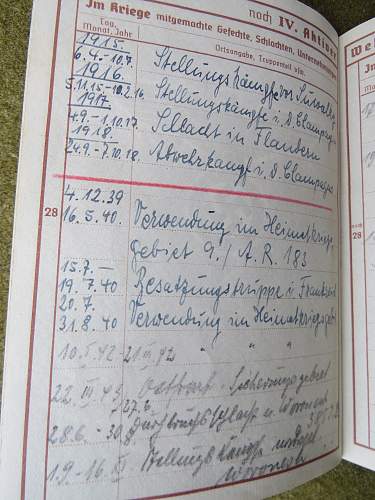 noch IV. Aktiver
Im Kriege mitgemachte Gefechte, Schlachten, Unternehmungen
Tag, Monat, Jahr
Ortsangabe, Truppenteil usw.
1915.
6.4.-10.7. Stellungskämpfe vor Suwalki
1916.
5.11.15-10.2.16. Stellungskämpfe i. d. Champagne
1917
4.9.-1.10.17 Schlacht in Flandern
1918.
24.9.-7.10.18. Abwehrkampf i. d. Champagne
4.12.39
28
16.5.40. Verwendung im Heimatkriegs-
gebiet 9./A.R. 183
15.7.-
19.7.40 Besatzungstruppe i. Frankreich
20.7.
31.8.40 Verwendung im Heimatkriegsgebiet
10.5.42-21.
22. Sicherungs gebiet
27.6.
28.6.- Durchbruchsschlacht
1.9.-16. Stellungs kämpfe
Woronesh
We
28